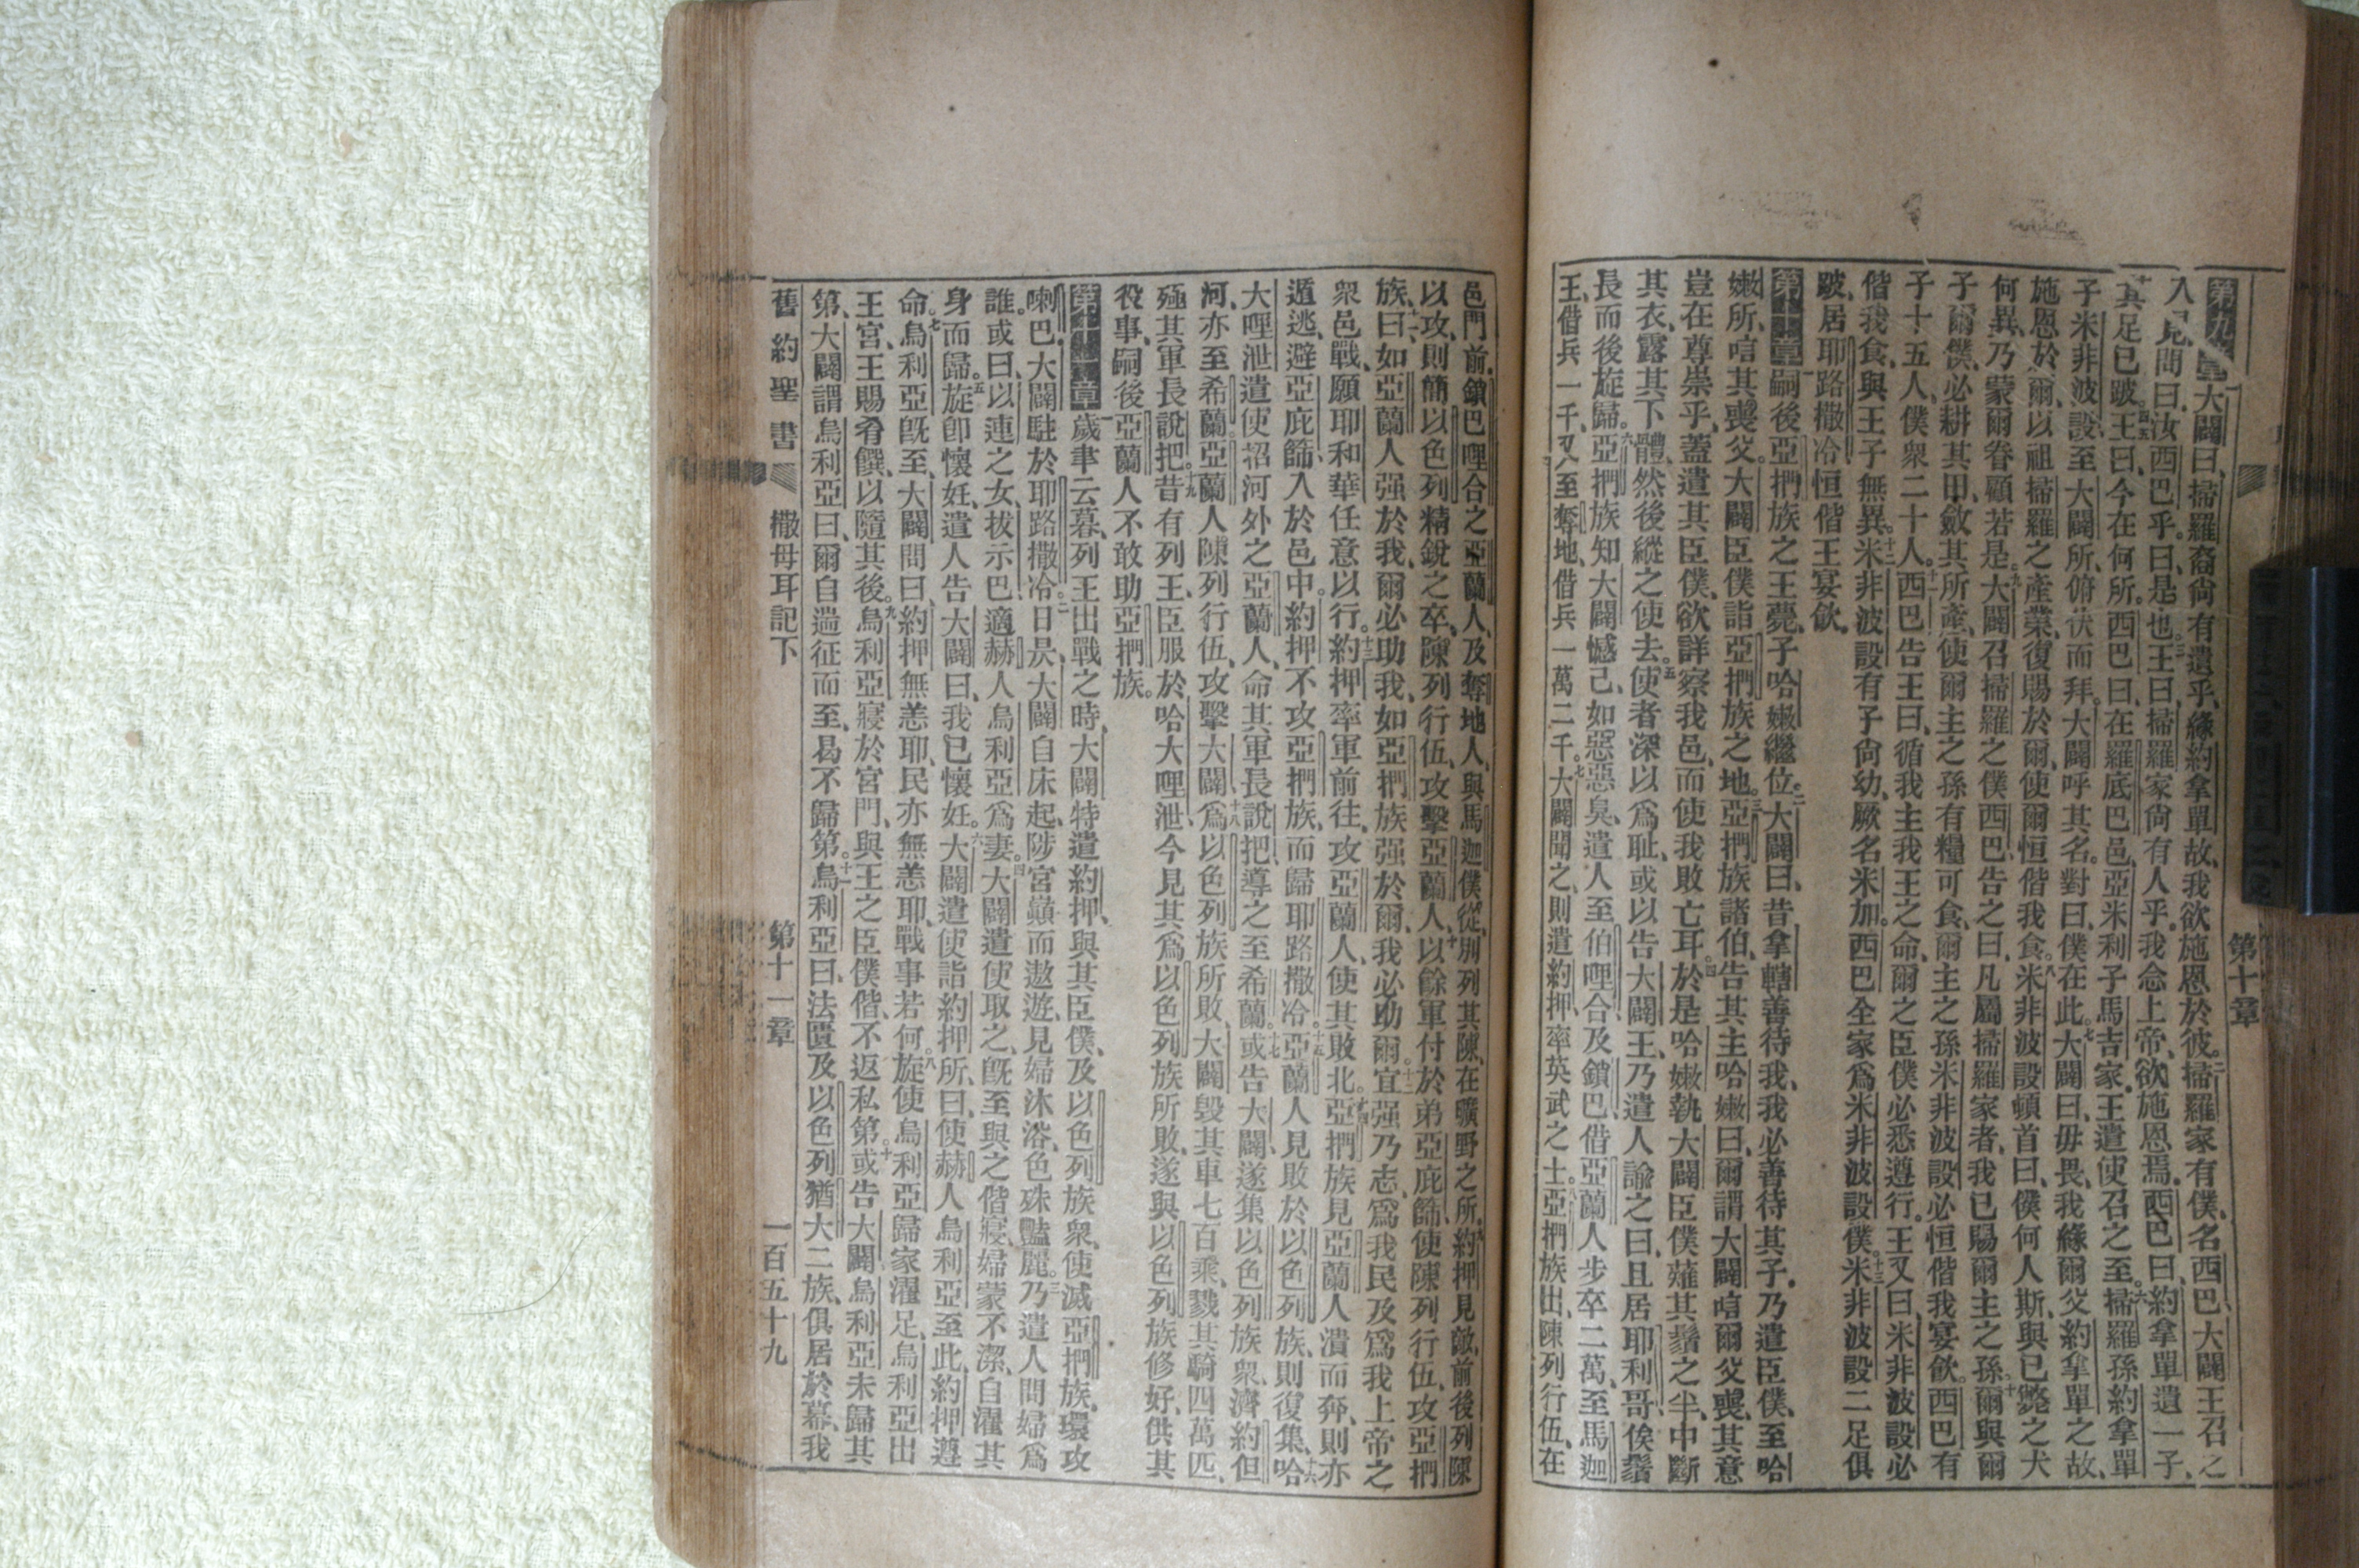 第十章
第九章大闢曰掃羅裔尙有遺乎緣約拿單故我欲施恩於彼二掃羅家有僕名西巴大闢王召之
入見問曰汝西巴乎曰是也三王曰掃羅家尙有人乎我念上帝欲施恩焉西巴曰約拿單遺一子
其足已跛四王曰今在何所西巴曰在羅底巴邑亞米利子馬吉家五王遣使召之至六掃羅孫約拿單
子米非波設至大闢所俯伏而拜大闢呼其名對曰僕在此七大闢曰毋畏我緣爾父約拿單之故
施恩於爾以祖掃羅之產業復賜於爾使爾恒偕我食八米非波設頓首曰僕何人斯與已斃之犬
何異乃蒙爾眷顧若是九大闢召掃羅之僕西巴告之曰凡屬掃羅家者我已賜爾主之孫十爾與爾
子爾僕必耕其田斂其所產使爾主之孫有糧可食爾主之孫米非波設必恒偕我宴飮西巴有
子十五人僕衆二十人十一西巴告王曰循我主我王之命爾之臣僕必悉遵行王又曰米非波設必
偕我食與王子無異十二米非波設有子尙幼厥名米加西巴全家爲米非波設僕十三米非波設二足俱
跛居耶路撒冷恒偕王宴飮
第十章一嗣後亞捫族之王薨子哈嫩繼位二大闢曰昔拿轄善待我我必善待其子乃遣臣僕至哈
嫩所唁其喪父大闢臣僕詣亞捫族之地三亞捫族諸伯告其主哈嫩曰爾謂大闢唁爾父喪其意
豈在尊崇乎蓋遣其臣僕欲詳察我邑而使我敗亡耳四於是哈嫩執大闢臣僕薙其鬚之半中斷
其衣露其下體然後縱之使去五使者深以爲耻或以告大闢王乃遣人諭之曰且居耶利哥俟鬚
長而後旋歸六亞捫族知大闢憾己如惡惡臭遣人至伯哩合及鎖巴借亞蘭人步卒二萬至馬迦
王借兵一千又至奪地借兵一萬二千七大闢聞之則遣約押率英武之士八亞捫族出陳列行伍在
邑門前鎖巴哩合之亞蘭人及奪地人與馬迦僕從別列其陳在曠野之所九約押見敵前後列陳
以攻則簡以色列精銳之卒陳列行伍攻擊亞蘭人十以餘軍付於弟亞庇篩使陳列行伍攻亞捫
族十一曰如亞蘭人强於我爾必助我如亞捫族强於爾我必助爾十二宜强乃志爲我民及爲我上帝之
衆邑戰願耶和華任意以行十三約押率軍前往攻亞蘭人使其敗北十四亞捫族見亞蘭人潰而奔則亦
遁逃避亞庇篩入於邑中約押不攻亞捫族而歸耶路撒冷十五亞蘭人見敗於以色列族則復集十六哈
大哩泄遣使招河外之亞蘭人命其軍長說把導之至希蘭十七或告大闢遂集以色列族衆濟約但
河亦至希蘭亞蘭人陳列行伍攻擊大闢十八爲以色列族所敗大闢毀其車七百乘戮其騎四萬匹
殛其軍長說把十九昔有列王臣服於哈大哩泄今見其爲以色列族所敗遂與以色列族修好供其
役事嗣後亞蘭人不敢助亞捫族
第十一章一歲聿云暮列王出戰之時大闢特遣約押與其臣僕及以色列族衆使滅亞捫族環攻
喇巴大闢駐於耶路撒冷二日昃大闢自床起陟宮巔而遨遊見婦沐浴色殊豔麗三乃遣人問婦爲
誰或曰以連之女拔示巴適赫人烏利亞爲妻四大闢遣使取之旣至與之偕寢婦蒙不潔自濯其
身而歸五旋卽懷妊遣人告大闢曰我已懷妊六大闢遣使詣約押所曰使赫人烏利亞至此約押遵
命七烏利亞旣至大闢問曰約押無恙耶民亦無恙耶戰事若何八旋使烏利亞歸家濯足烏利亞出
王宮王賜肴饌以隨其後九烏利亞寢於宮門與王之臣僕偕不返私第十或告大闢烏利亞未歸其
第大闢謂烏利亞曰爾自遄征而至曷不歸第十一烏利亞曰法匱及以色列猶大二族俱居於幕我
舊約聖書 撒母耳記下 第十一章 一百五十九